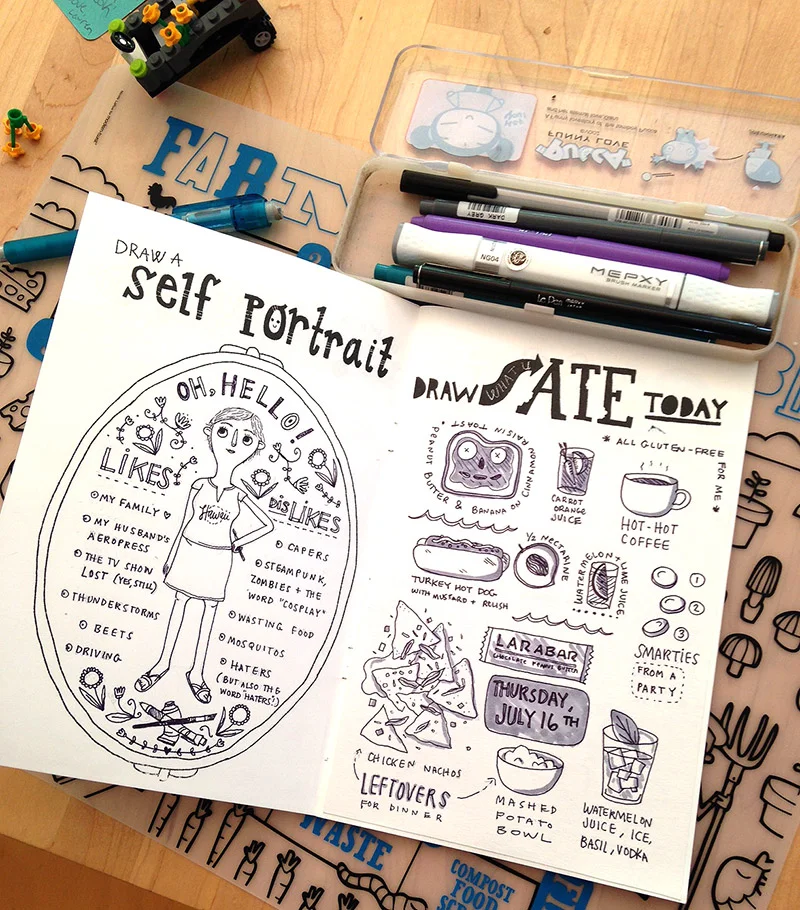 FARM
FUNNY LOVE
PUCCA
DARK GREY
NG04
MEPXY
BRUSH MARKER
Le Pen
DRAW A
Self Portrait
OH, HELLO!
LIKES
MY FAMILY
MY HUSBAND'S
AEROPRESS
THE TV SHOW
LOST (YES, STILL)
THUNDERSTORMS
BEETS
DRIVING
Hawaii
DISLIKES
CAPERS
STEAMPUNK,
ZOMBIES + THE
WORD "COSPLAY"
WASTING FOOD
MOSQUITOS
HATERS
(BUT ALSO THE
WORD "HATERS")
DRAW WHAT U ATE TODAY
* ALL GLUTEN-FREE
FOR ME *
PEANUT BUTTER & BANANA ON CINNAMON
RAISIN TOAST
CARROT
ORANGE
JUICE
HOT-HOT
COFFEE
TURKEY HOT DOG
WITH MUSTARD + RELISH
½ NECTARINE
WATERMELON + LIME JUICE
1
2
3
SMARTIES
FROM A
PARTY
LARABAR
CHOCOLATE PEANUT BUTTER
THURSDAY,
JULY 16TH
CHICKEN NACHOS
LEFTOVERS
FOR DINNER
MASHED
POTATO
BOWL
WATERMELON
JUICE, ICE,
BASIL, VODKA
WASTE
COMPOST
FOOD